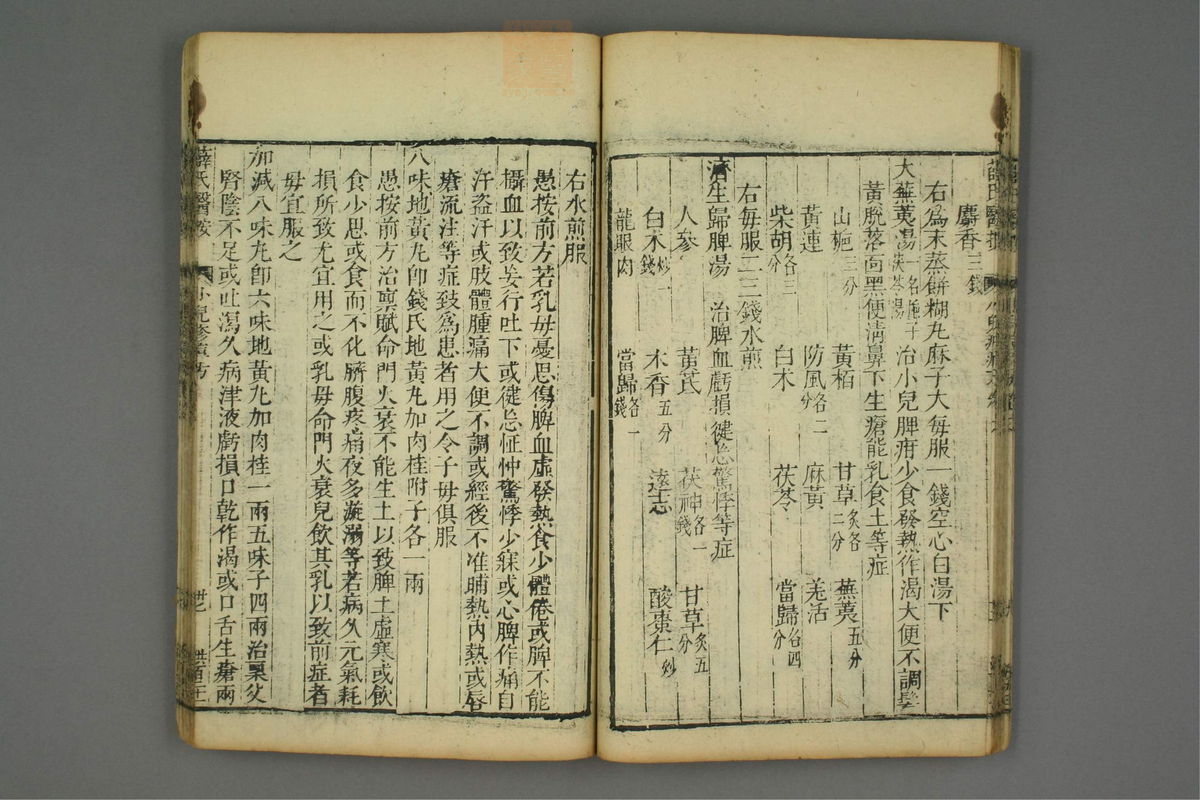 麝香三錢
右為末蒸餅糊丸麻子大每服一錢空心白湯下
大蕪荑湯一名梔子茯苓湯 治小兒脾疳少食發熱作渴大便不調髮
黃脫落面黑便清鼻下生瘡能乳食土等症
山梔三分 黃栢 甘草炙各二分 蕪荑五分
黃連 防風各二 麻黃 羌活
柴胡各三分 白朮 茯苓 當歸各四分
右每服二三錢水煎
濟生歸脾湯 治脾血虧損健忘驚悸等症
人參 黃芪 茯神各一錢 甘草炙五分
白朮炒一錢 木香五分 遠志 酸棗仁炒
龍眼肉 當歸各一錢
右水煎服
愚按前方若乳母憂思傷脾血虛發熱食少體倦或脾不能
攝血以致妄行吐下或健忘怔忡驚悸少寐或心脾作痛自
汗盜汗或肢體腫痛大便不調或經後不准晡熱內熱或唇
瘡流注等症致為患者用之令子母俱服
八味地黃丸卽錢氏地黃丸加肉桂附子各一兩
愚按前方治稟賦命門火衰不能生土以致脾土虛寒或飲
食少思或食而不化臍腹疼痛夜多漩溺等若病久元氣耗
損所致尤宜用之或乳母命門火衰兒飲其乳以致前症者
母宜服之
加減八味丸卽六味地黃丸加肉桂一兩五味子四兩治稟父
腎陰不足或吐瀉久病津液虧損口乾作渴或口舌生瘡兩
薛氏醫按